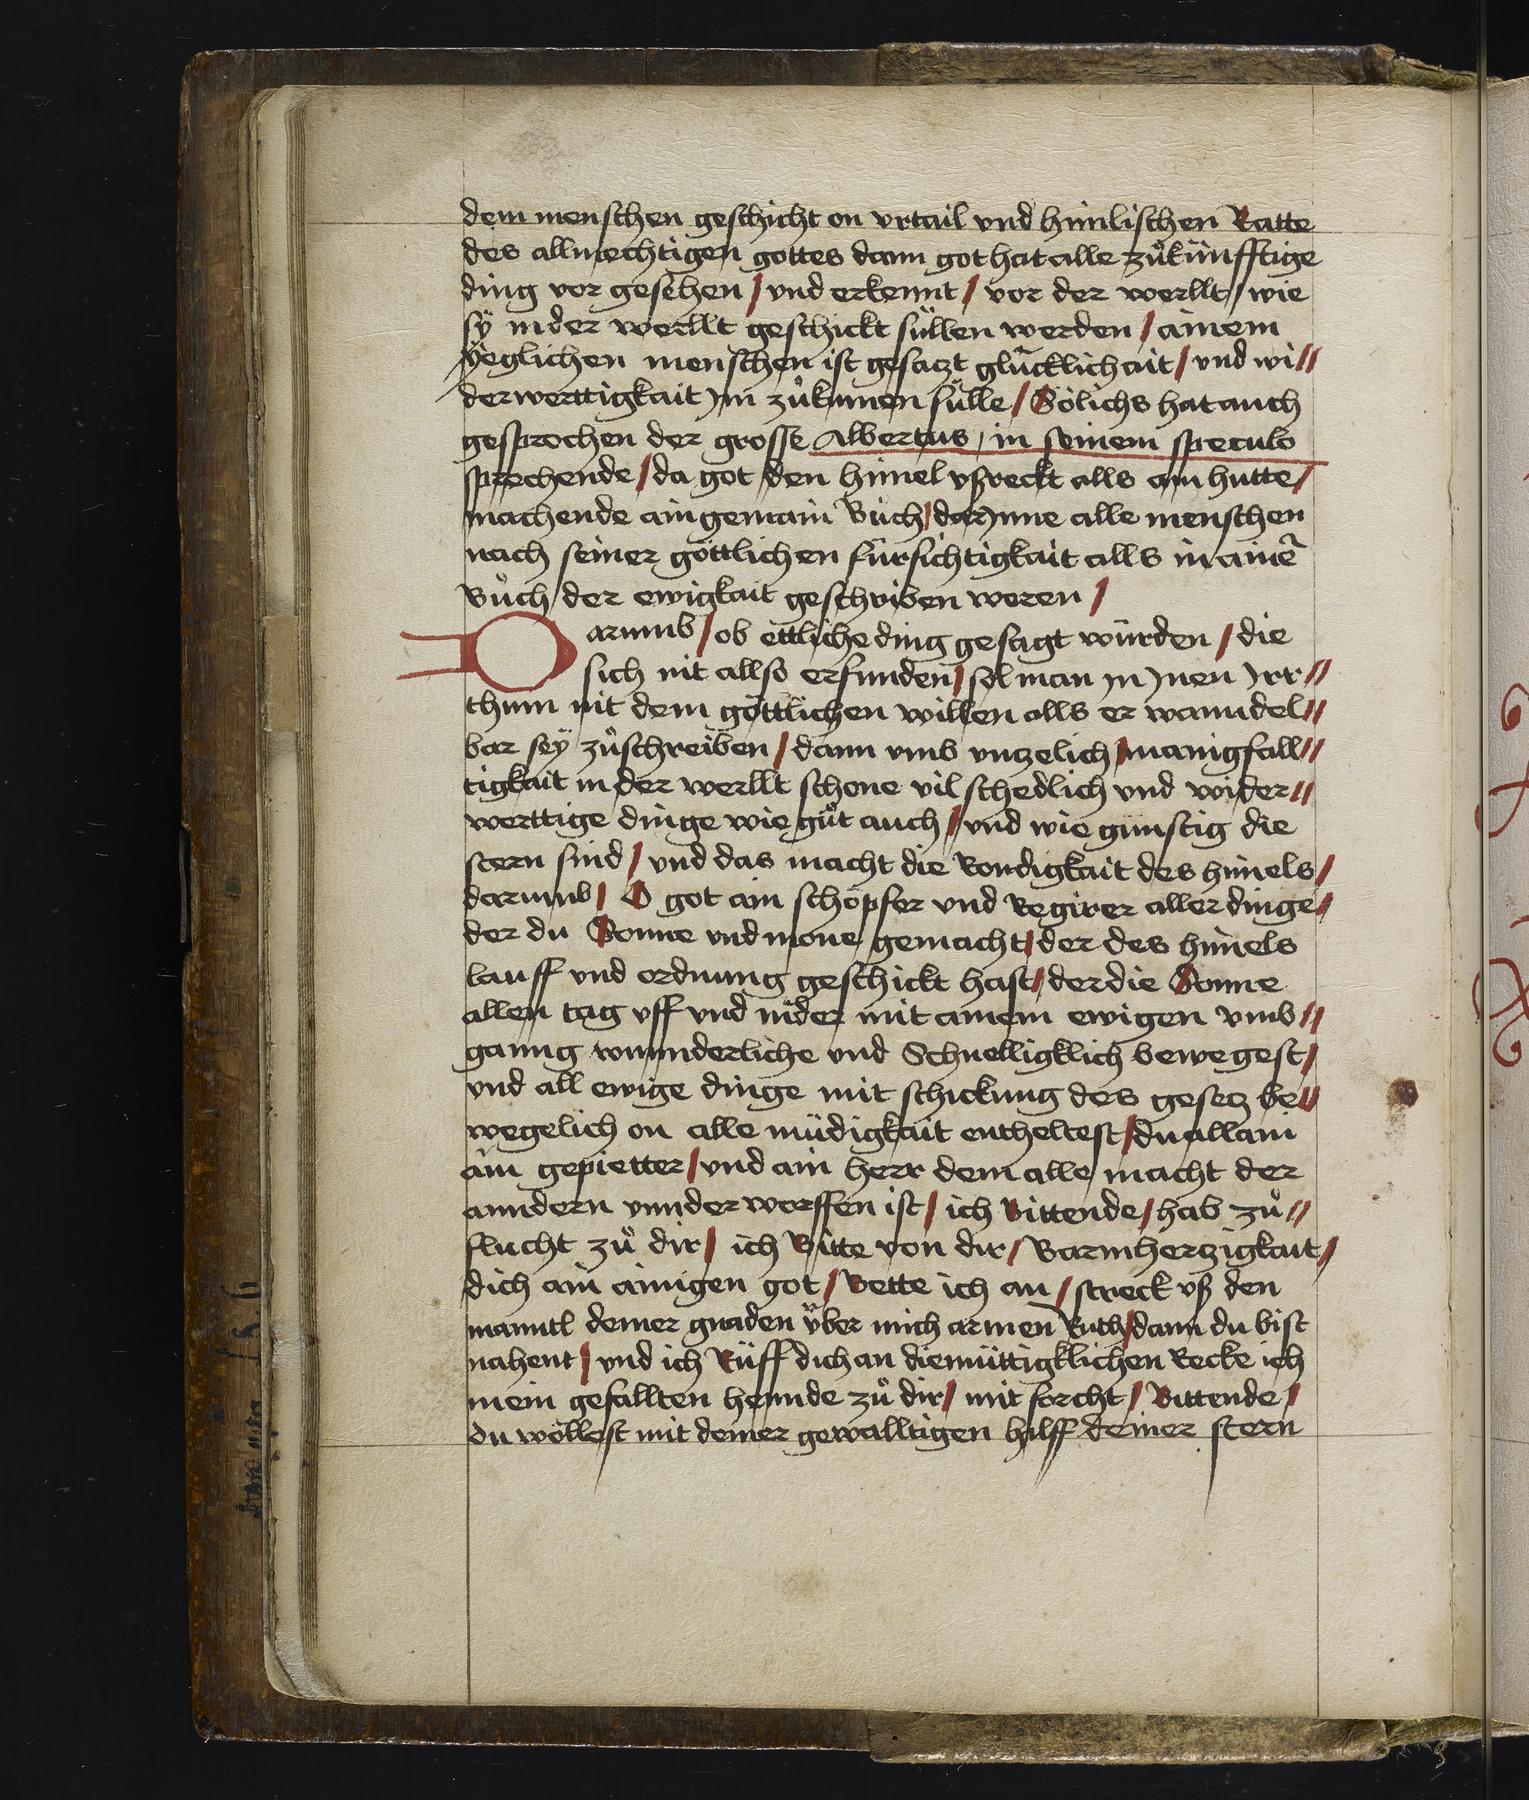 dem menschen geschicht on vrtail vnd himlischen Ratte
des allmechtigen gottes dann got hat alle zuͦkünfftige
ding vor gesehen / vnd erkennt / vor der werllt / wie
sÿ in der werllt geschickt süllen werden / ainem
ÿeglichen menschen ist gesatzt glücklichait / vnd wi//
derwerttigkait ym zuͦkumen sülle / Sölichs hat auch
gesprochen der grosse Albertus / in seinem speculo
sprechende / da got den himel vßreckt alls ain hutte /
machende ain gemain Buͦch / dar ynne alle menschen
nach seiner göttlichen fürsichtigkait alls in aine͂
Buͦch / der ewigkait geschriben weren /
Darumb / ob ettliche ding gesagt würden / die
sich nit allso erfunden / sol man yn ynen yrr//
thum nit dem göttlichen willen alls er wanndel//
bar seÿ zuͦschreiben / dann vmb vnzelich / manigfall//
tigkait in der werllt schene vil schedlich vnd wider//
werttige dinge wie guͦt auch / vnd wie günstig die
stern sind / vnd das macht die Rondigkait des himels /
darumb / O got ain schöpfer vnd Regirer aller dinge /
der du Sonne vnd mone gemacht / der des himels
lauff vnd ordnung geschickt hast / der die Sonne
allen tag vff vnd nider mit ainem ewigen vmb//
ganng wunnderliche vnd Schnelligklich bewegest /
vnd all ewige dinge mit schickung des gesetz be//
wegelich on alle müdigkait entheltest / du allain
ain gepietter / vnd ain herr dem alle macht der
anndern vnnderworffen ist / ich Bittende / hab zuͦ //
flucht zuͦ dir / ich Bitte von dir / Barmhertzigkait /
dich ain ainigen got / Bette ich an / streck vß den
manntl deiner gnaden über mich armen Ruth / dann du bist
nahent / vnd ich Rüff dich an diemüttigklichen Recke ich
mein gefallten hennde zuͦ dir / mit forcht / Bittende /
du wöllest mit deiner gewalltigen hilff deiner stern